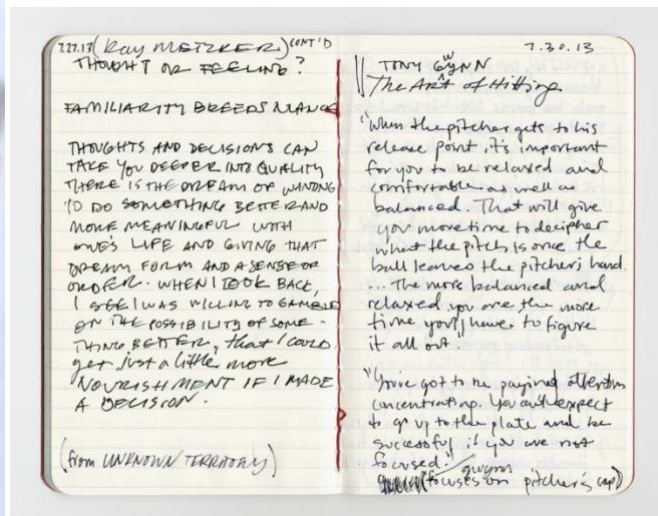 7.27.13 (Ray METZKER) CONT'D
THOUGHT OR FEELING?
FAMILIARITY BREEDS NUANCE
THOUGHTS AND DECISIONS CAN
TAKE YOU DEEPER INTO QUALITY
THERE IS THE DREAM OF WANTING
TO DO SOMETHING BETTER AND
MORE MEANINGFUL WITH
ONE'S LIFE AND GIVING THAT
DREAM FORM AND A SENSE OF
ORDER. WHEN I LOOK BACK,
I SEE I WAS WILLING TO GAMBLE
ON THE POSSIBILITY OF SOME-
THING BETTER, that I could
get just a little more
NOURISHMENT IF I MADE
A DECISION.
(from UNKNOWN TERRITORY)
7.30.13
TONY GWYNN
The Art of Hitting
"When the pitcher gets to his
release point, it's important
for you to be relaxed and
comfortable as well as
balanced. That will give
you more time to decipher
what the pitch is once the
ball leaves the pitcher's hand
... The more balanced and
relaxed you are, the more
time you'll have to figure
it all out."
"You've got to be paying attention
concentrating. You can't expect
to go up to the plate and be
successful if you are not
focused."
gwynn
(focuses on pitcher's cap)